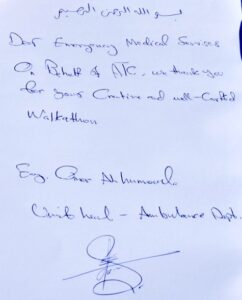 بسم الله الرحمن الرحيم
Dear Emergency Medical Services
On Behalf of ATC, we thank you
for your Creative and well-Curated
Walkathon
Eng. Omar
Unit head - Ambulance Dept.